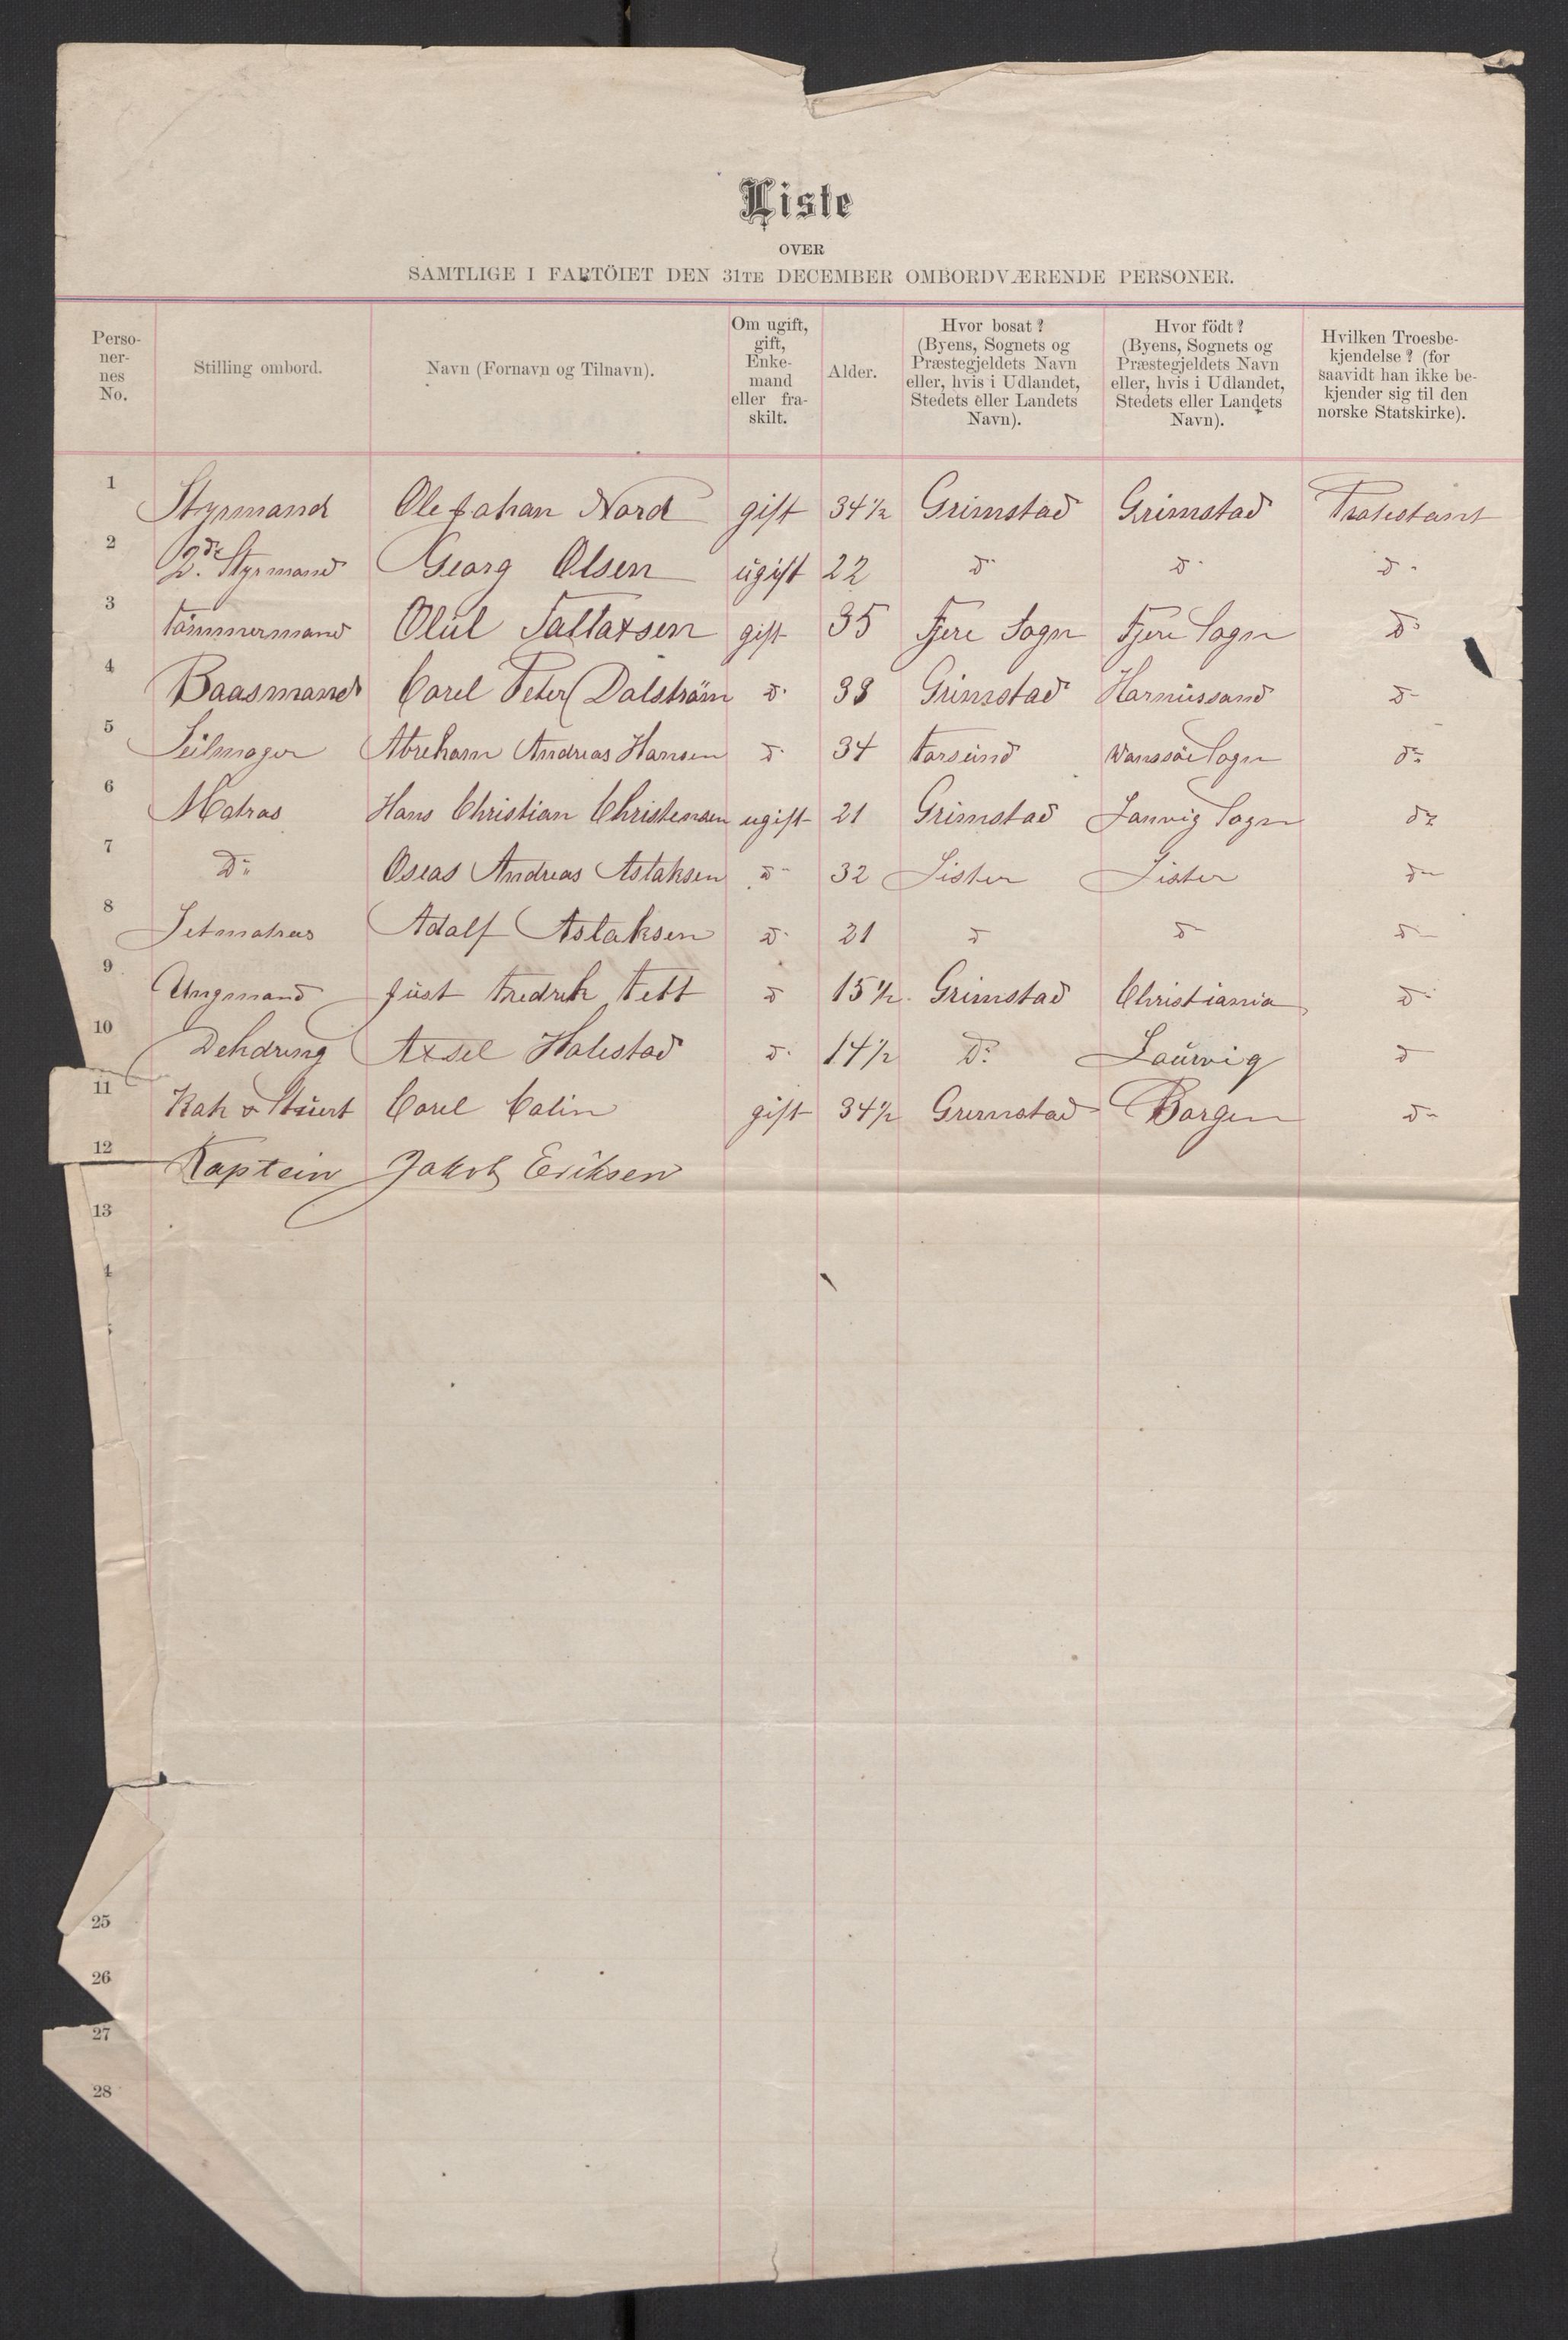 Liste
OVER
SAMTLIGE I FARTÖIET DEN 31TE DECEMBER OMBORDVÆRENDE PERSONER.
Perso-
ner-
nes
No.
Stilling ombord.
Navn (Fornavn og Tilnavn).
Om ugift,
gift,
Enke-
mand
eller fra-
skilt.
Alder.
Hvor bosat?
(Byens, Sognets og
Præstegjeldets Navn
eller, hvis i Udlandet,
Stedets eller Landets
Navn).
Hvor födt?
(Byens, Sognets og
Præstegjeldets Navn
eller, hvis i Udlandet,
Stedets eller Landets
Navn).
Hvilken Troesbe-
kjendelse? (for
saavidt han ikke be-
kjender sig til den
norske Statskirke).
1 Styrmand Ole Johan Nord gift 34½ Grimstad Grimstad Protestant
2 2de Styrmand Georg Olsen ugift 22 do do do
3 Tömmermand Olul gift 35 Fjere Sogn Fjere Sogn do
4 Baasmand Carel Peter Dalström do 38 Grimstad Harnüssand do
5 Seilmager Abreham Andreas Hansen do 34 Farsund Wanssöe Sogn do
6 Matros Hans Christian Christensen ugift 21 Grimstad Sogn do
7 Do Oseas Andreas Aslaksen do 32 Lister Lister do
8 Letmatros Adolf Aslaksen do 21 do do do
9 Ungmand Just Fredrik Fett do 15½ Grimstad Christiania do
10 Dekdreng Axsel Halestad do 14½ Do Laurvig do
11 Kok & Stüert Carel Calin gift 34½ Gremstad Borgen do
12 Kaptein Jakob Eriksen
13
4
25
26
27
28